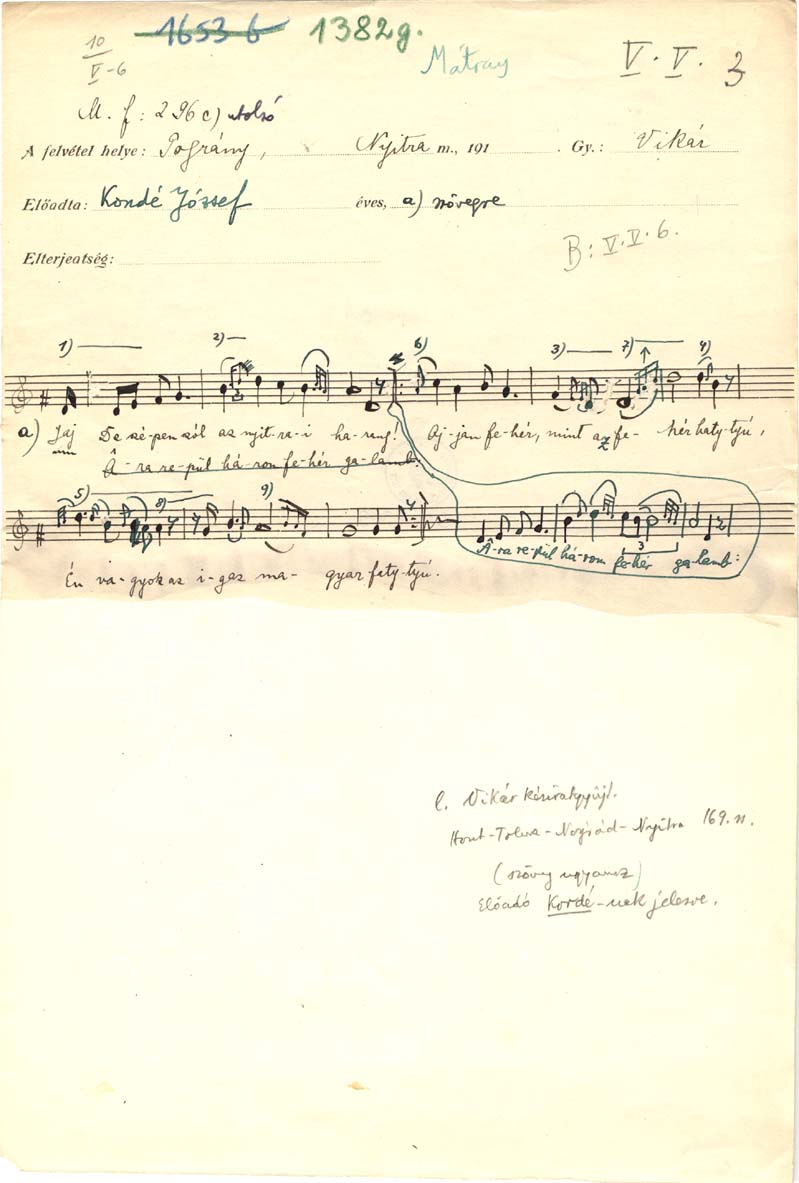 1653 b 1382g.
10
V-6
Mátray
V. V. 3
M. f: 296 c) utolsó
A felvétel helye: Pográny, Nyitra m., 191 . Gy.: Vikár
Előadta: Kondé József éves, a) szövegre
B: V.V.6.
Elterjeatség:
1) 2) 6) 3) 7) 4)
a) Jaj De szé-pen szól az nyit-ra-i ha-rang! Aj-jan fe-hér, mint az fe- hér haty-tyú,
Â-ra re-pül há-rom fe-hér ga-lamb:
5) 8) 9)
Â-ra re-pül há-rom fe-hér ga-lamb:
3
Én va-gyok az i-gaz ma- gyar faty-tyú.
l. Vikár kéziratgyűjt.
Hont-Tolna-Nógrád-Nyitra 169. n.
(szöveg ugyanaz)
Előadó Kordé-nak jelezve.